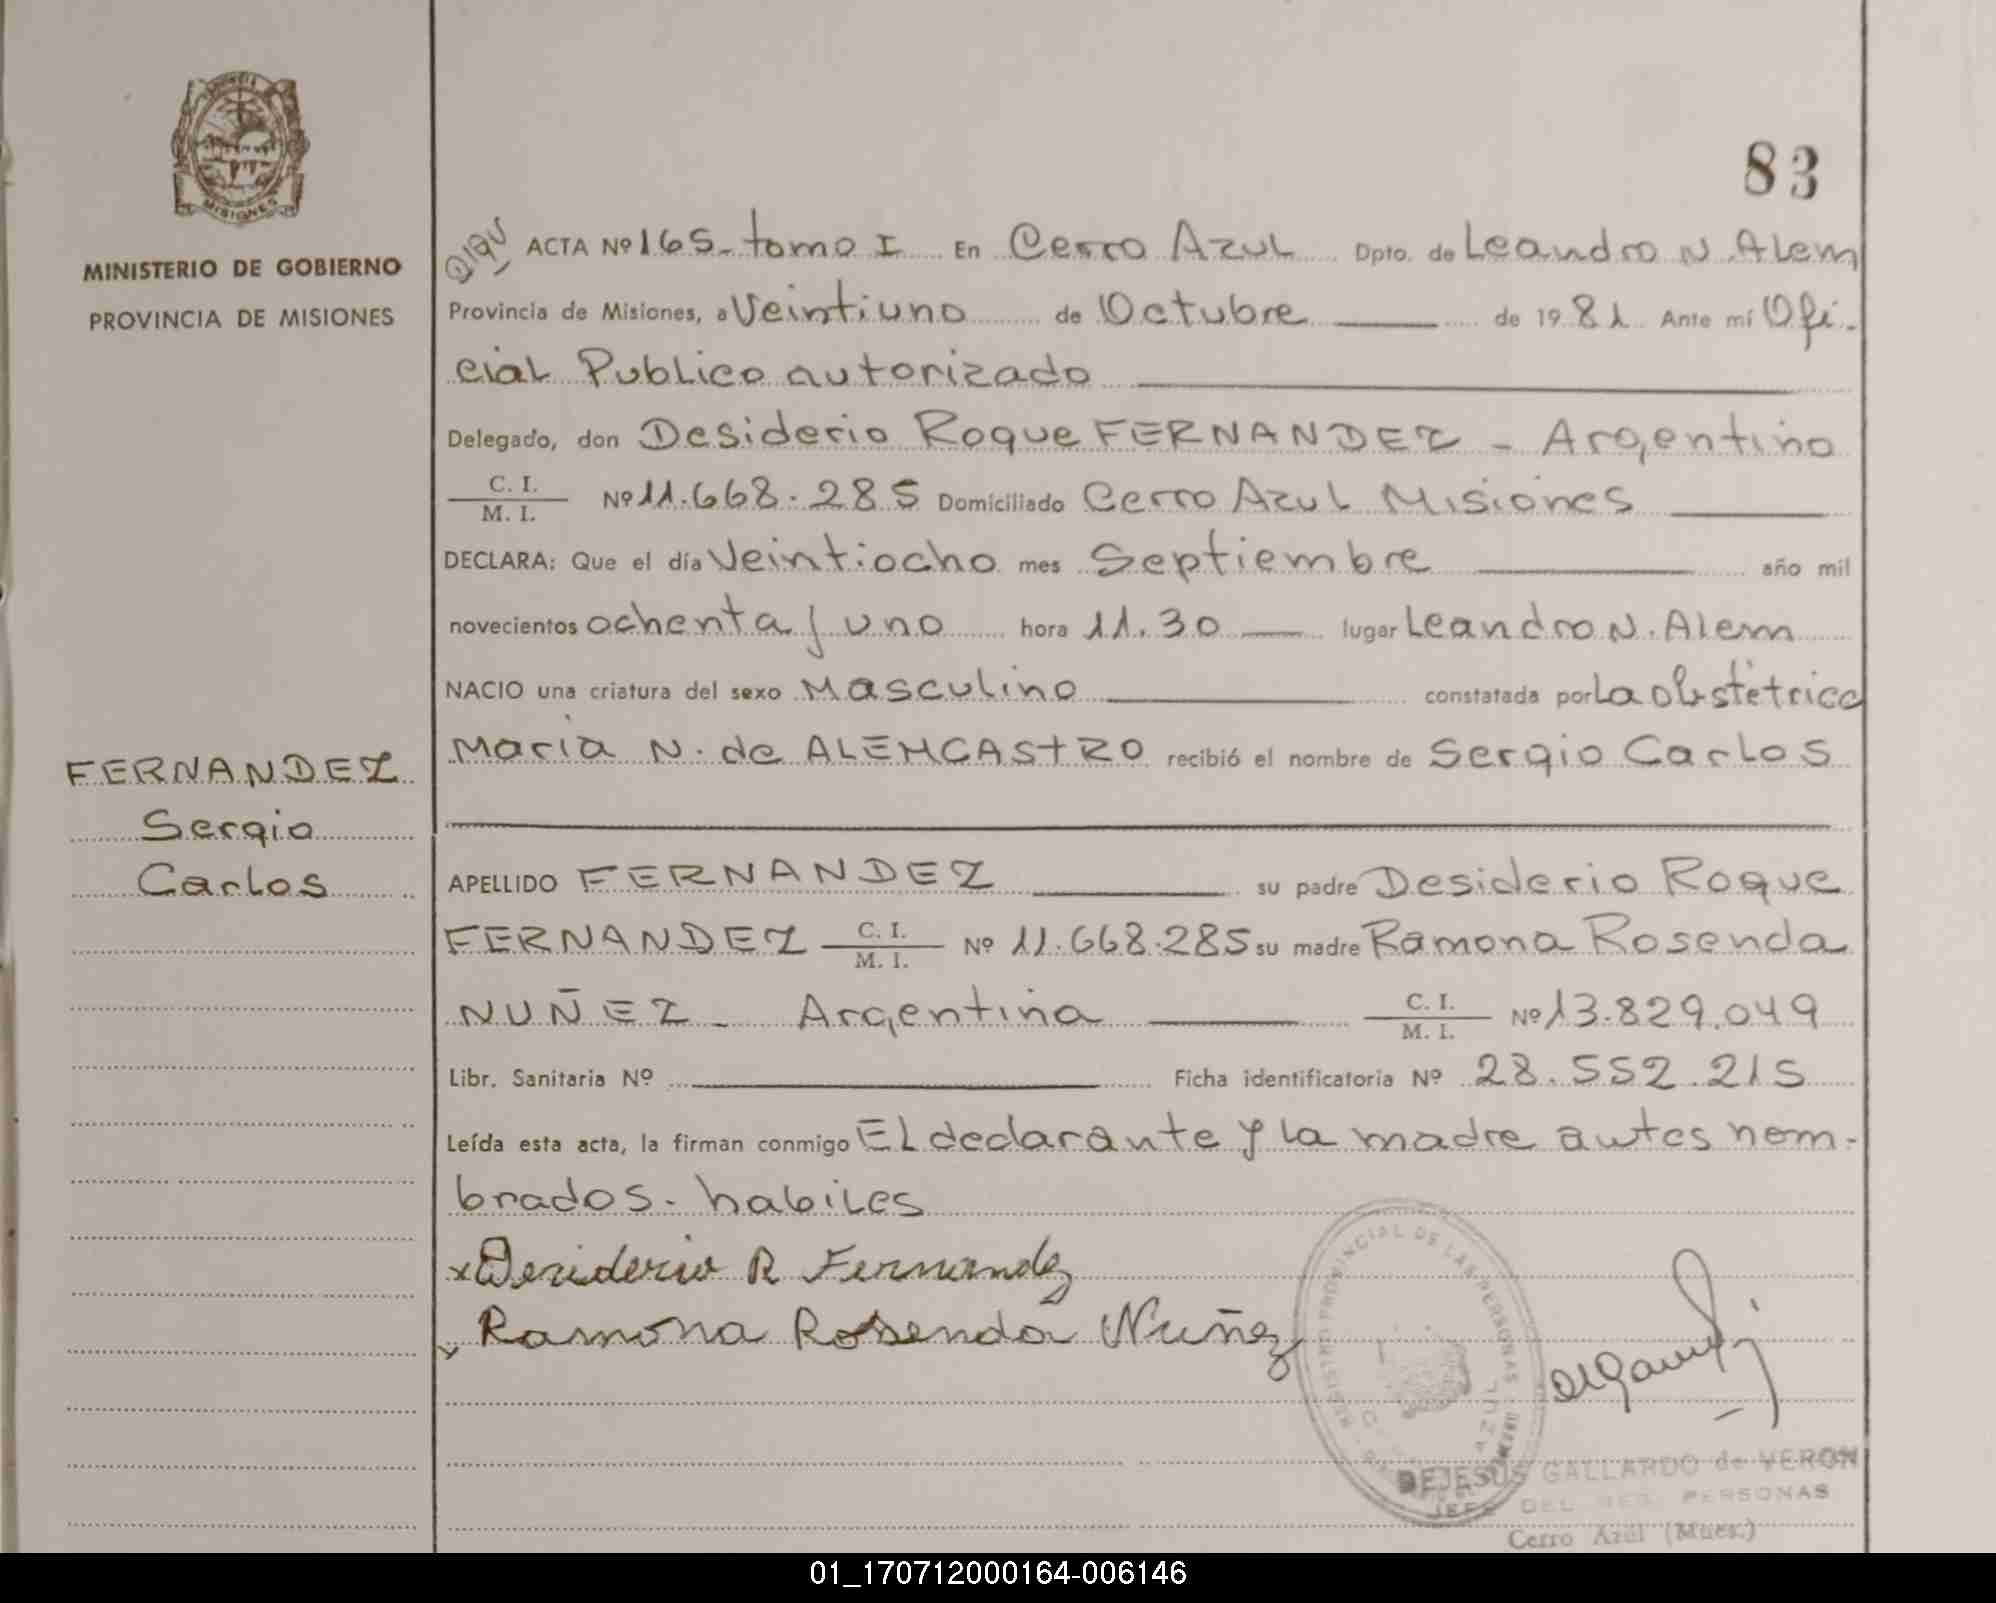 MISIONES
MINISTERIO DE GOBIERNO
PROVINCIA DE MISIONES
83
ACTA Nº 165- tomo I En Cerro Azul Dpto. de Leandro N. Alem
Provincia de Misiones, a Veintiuno de Octubre de 1981 Ante mí Ofi-
cial Publico autorizado
Delegado, don Desiderio Roque FERNANDEZ - Argentino
C. I.
M. I. Nº 11.668.285 Domiciliado Cerro Azul Misiones
DECLARA: Que el día Veintiocho mes Septiembre año mil
novecientos ochenta y uno hora 11.30 lugar Leandro N. Alem
NACIO una criatura del sexo Masculino constatada por La obstétrica
Maria N. de ALEMCASTRO recibió el nombre de Sergio Carlos
FERNANDEZ
Sergio
Carlos
APELLIDO FERNANDEZ su padre Desiderio Roque
FERNANDEZ C. I.
M. I. Nº 11.668.285 su madre Ramona Rosenda
NUÑEZ - Argentina C. I.
M. I. Nº 13.829.049
Libr. Sanitaria Nº Ficha identificatoria Nº 28.552.215
Leída esta acta, la firman conmigo EL declarante y la madre antes nom-
brados- habiles
x Desiderio R Fernandez
x Ramona Rosenda Nuñez
REGISTRO PROVINCIAL DE LAS PERSONAS
DEJESUS GALLARDO de VERON
JEFE DEL REG. PERSONAS
Cerro Azul (Mnes.)
01_170712000164-006146